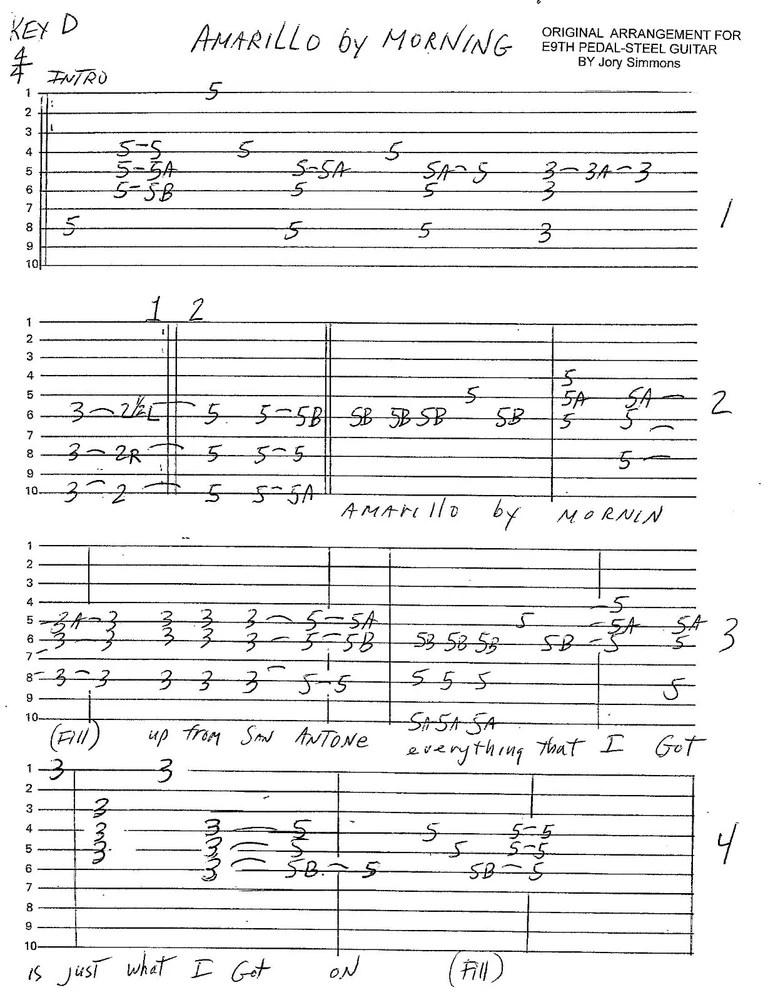 KEY D
AMARILLO by MORNING
ORIGINAL ARRANGEMENT FOR
E9TH PEDAL-STEEL GUITAR
BY Jory Simmons
4/4 INTRO
1 5
2
3
4 5-5 5 5
5 5-5A 5-5A 5A-5 3-3A-3
6 5-5B 5 5 3
7
8 5 5 5 3
9
10
1
1 2
1
2
3
4 5
5 5 5A 5A
6 3-2½L 5 5-5B 5B 5B 5B 5B 5 5
7
8 3-2R 5 5-5 5
9
10 3-2 5 5-5A
2
AMARIllO by MORNIN
1
2
3
4 5
5 3A-3 3 3 3-5-5A 5 5A 5A
6 3-3 3 3 3-5-5B 5B 5B 5B 5B-5 5
7
8 3-3 3 3 3 5-5 5 5 5 5
9
10 5A 5A 5A
3
(Fill) up from SAN ANTONE everything that I Got
1 3 3
2
3 3
4 3 3-5 5 5-5
5 3 3-5 5 5-5
6 3-5B-5 5B-5
7
8
9
10
4
is just what I Got ON (Fill)